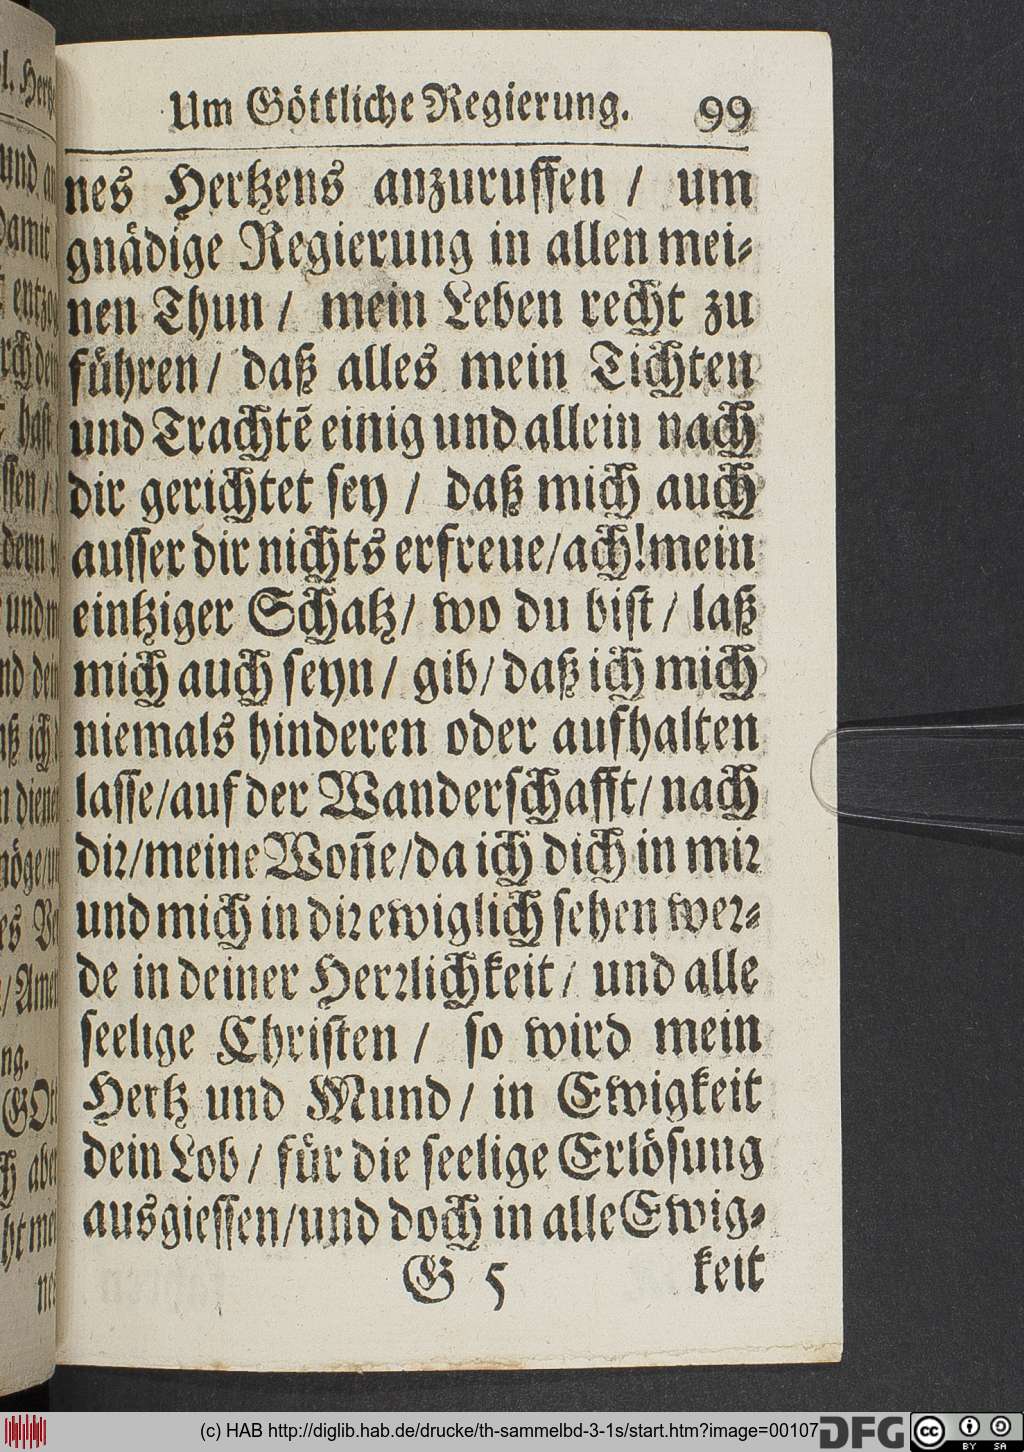 Um Göttliche Regierung. 99
nes Hertzens anzuruffen / um
gnädige Regierung in allen mei-
nen Thun / mein Leben recht zu
führen / daß alles mein Tichten
und Trachtē einig und allein nach
dir gerichtet sey / daß mich auch
ausser dir nichts erfreue / ach! mein
eintziger Schatz / wo du bist / laß
mich auch seyn / gib / daß ich mich
niemals hinderen oder aufhalten
lasse / auf der Wanderschafft / nach
dir / meine Won̄e / da ich dich in mir
und mich in dir ewiglich sehen wer-
de in deiner Herrlichkeit / und alle
seelige Christen / so wird mein
Hertz und Mund / in Ewigkeit
dein Lob / für die seelige Erlösung
ausgiessen / und doch in alle Ewig-
G 5 keit
(c) HAB http://diglib.hab.de/drucke/th-sammelbd-3-1s/start.htm?image=00107
DFG
cc BY SA